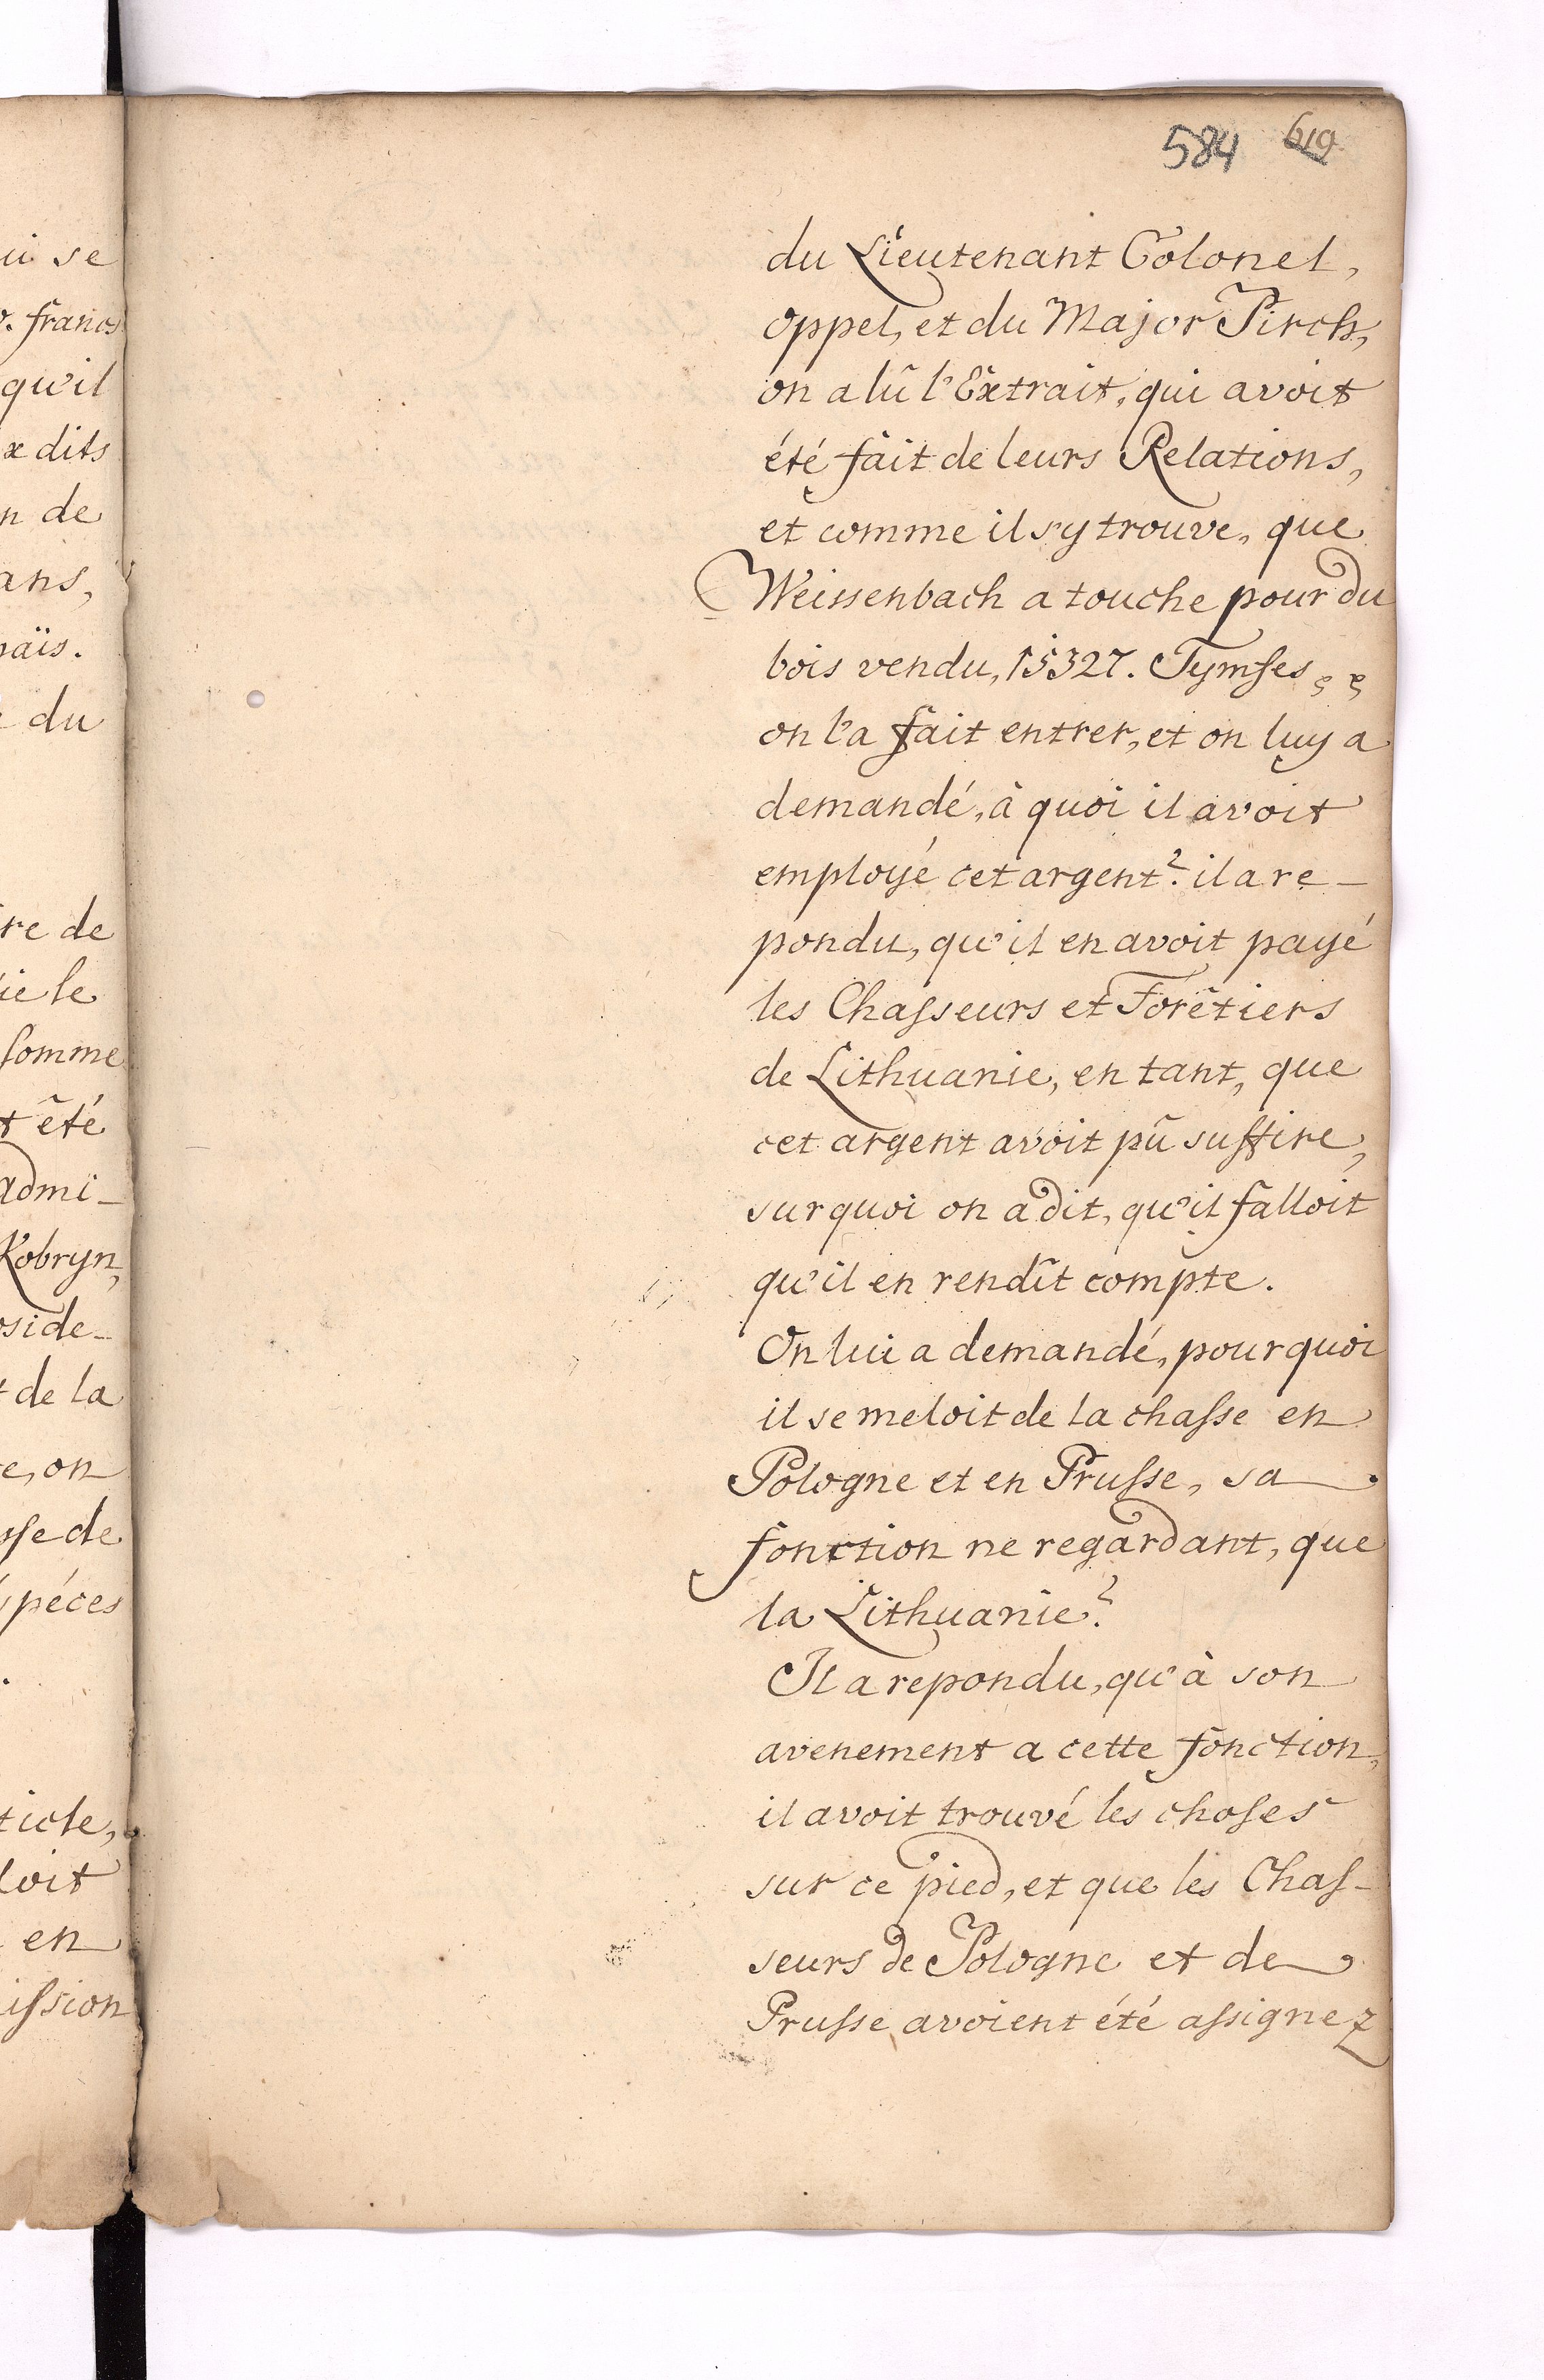 ui se
. francs
qu'il
x dits
n de
ans,
païs.
e du
re de
ie le
somme
t été
admi-
Kobryn,
oside-
t de la
e, on
sse de
spéces
ticle,
loit
en
ission
584 619
du Lieutenant Colonel,
Oppel, et du Major Pirch,
on a lû l'Extrait, qui avoit
été fait de leurs Relations,
et comme il s'y trouve, que
Weissenbach a touche pour du
bois vendu, 15327. Tymfes,
on l'a fait entrer, et on luy a
demandé, à quoi il avoit
employé cet argent? il a re-
pondu, qu'il en avoit payé
les Chasseurs et Forêtiers
de Lithuanie, en tant, que
cet argent avoit pû suffire,
sur quoi on a dit, qu'il falloit
qu'il en rendît compte.
On lui a demandé, pourquoi
il se meloit de la chasse en
Pologne et en Prusse, sa
fonction ne regardant, que
la Lithuanie?
Il a repondu, qu'à son
avenement a cette fonction,
il avoit trouvé les choses
sur ce pied, et que les Chas-
seurs de Pologne et de
Prusse avoient été assignez